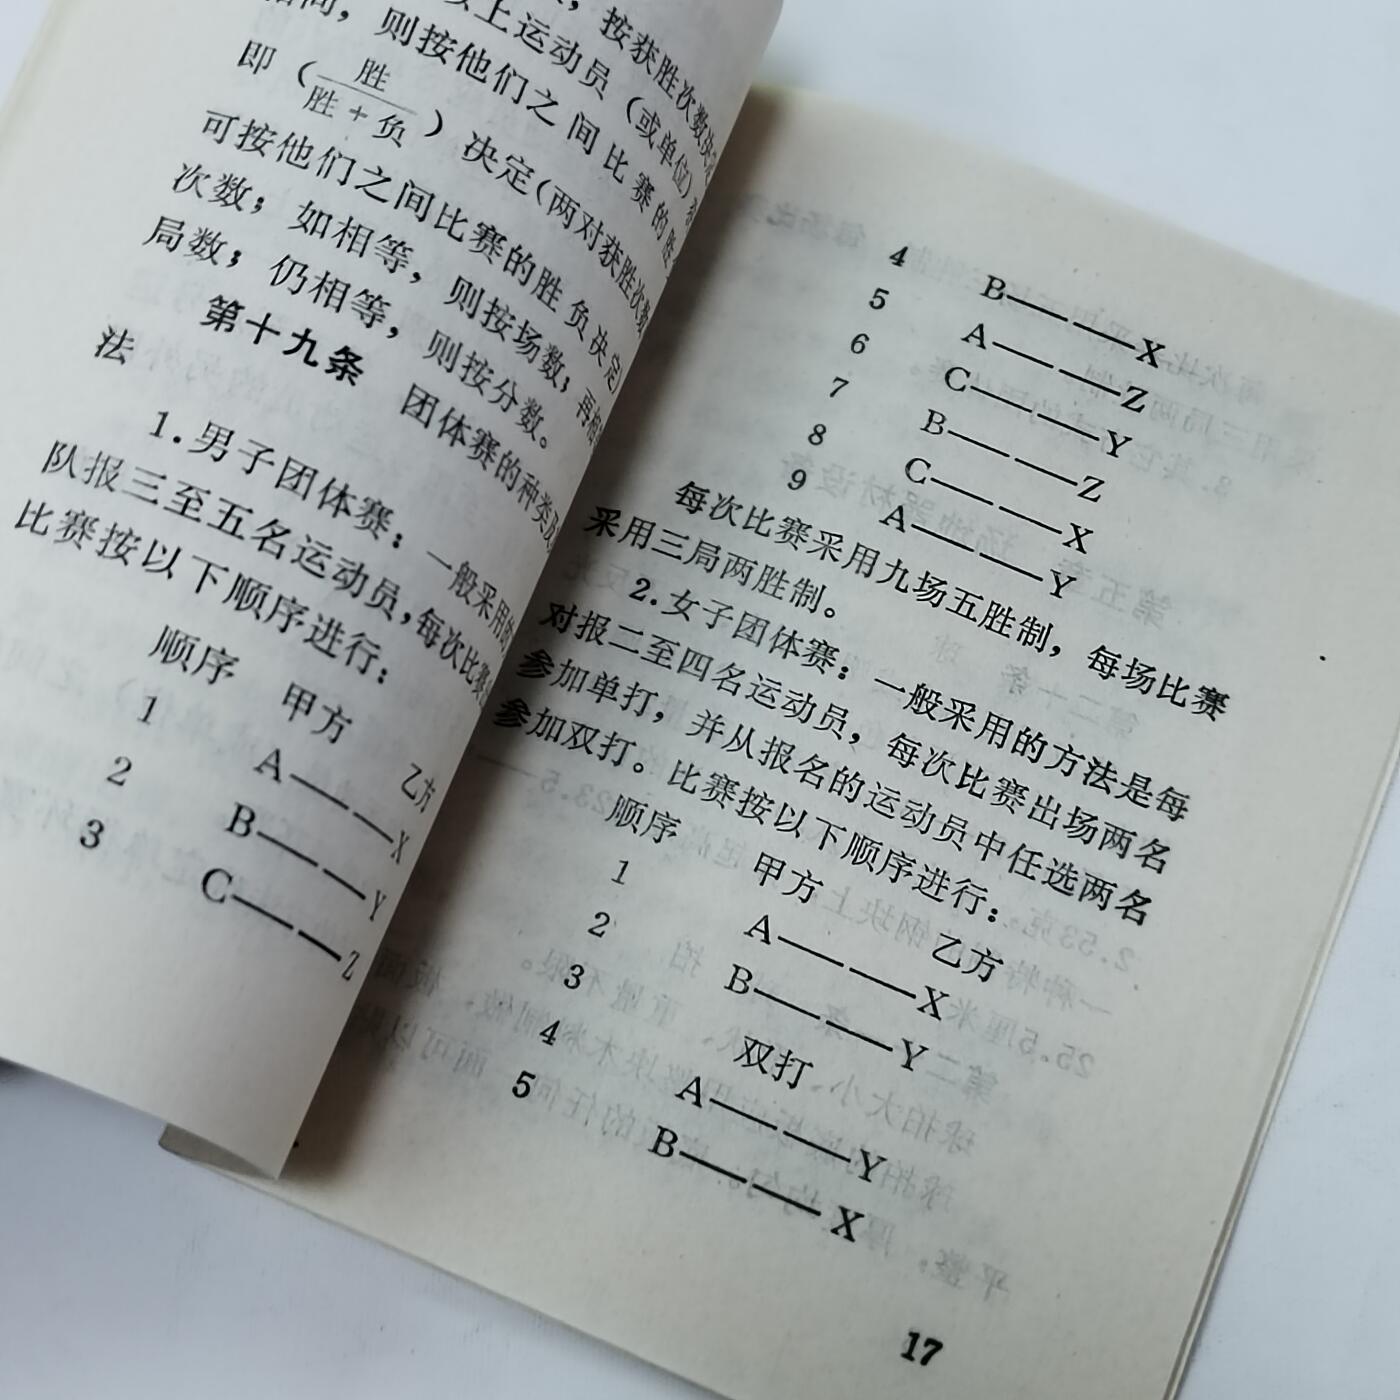 ，按获胜次数决定
以上运动员（或单位）
相同，则按他们之间比赛的胜
即（胜
胜＋负）决定（两对获胜次数
可按他们之间比赛的胜负决定）
次数；如相等，则按场数；再相
局数；仍相等，则按分数。
第十九条 团体赛的种类及
法
1．男子团体赛：一般采用的
队报三至五名运动员，每次比赛
比赛按以下顺序进行：
顺序 甲方 乙方
1 A———X
2 B———Y
3 C———Z
4 B———X
5 A———Z
6 C———Y
7 B———Z
8 C———X
9 A———Y
每次比赛采用九场五胜制，每场比赛
采用三局两胜制。
2．女子团体赛：一般采用的方法是每
对报二至四名运动员，每次比赛出场两名
参加单打，并从报名的运动员中任选两名
参加双打。比赛按以下顺序进行：
顺序 甲方 乙方
1 A———X
2 B———Y
3 双打
4 A———Y
5 B———X
17